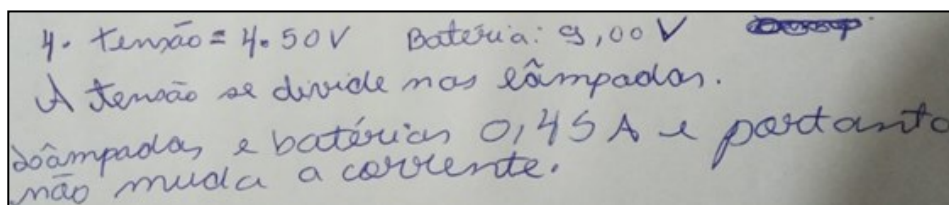 4. tensão = 4.50V Bateria: 9,00V
A tensão se divide nas lâmpadas.
lâmpadas e batérias 0,45A e portanto
não muda a corrente.